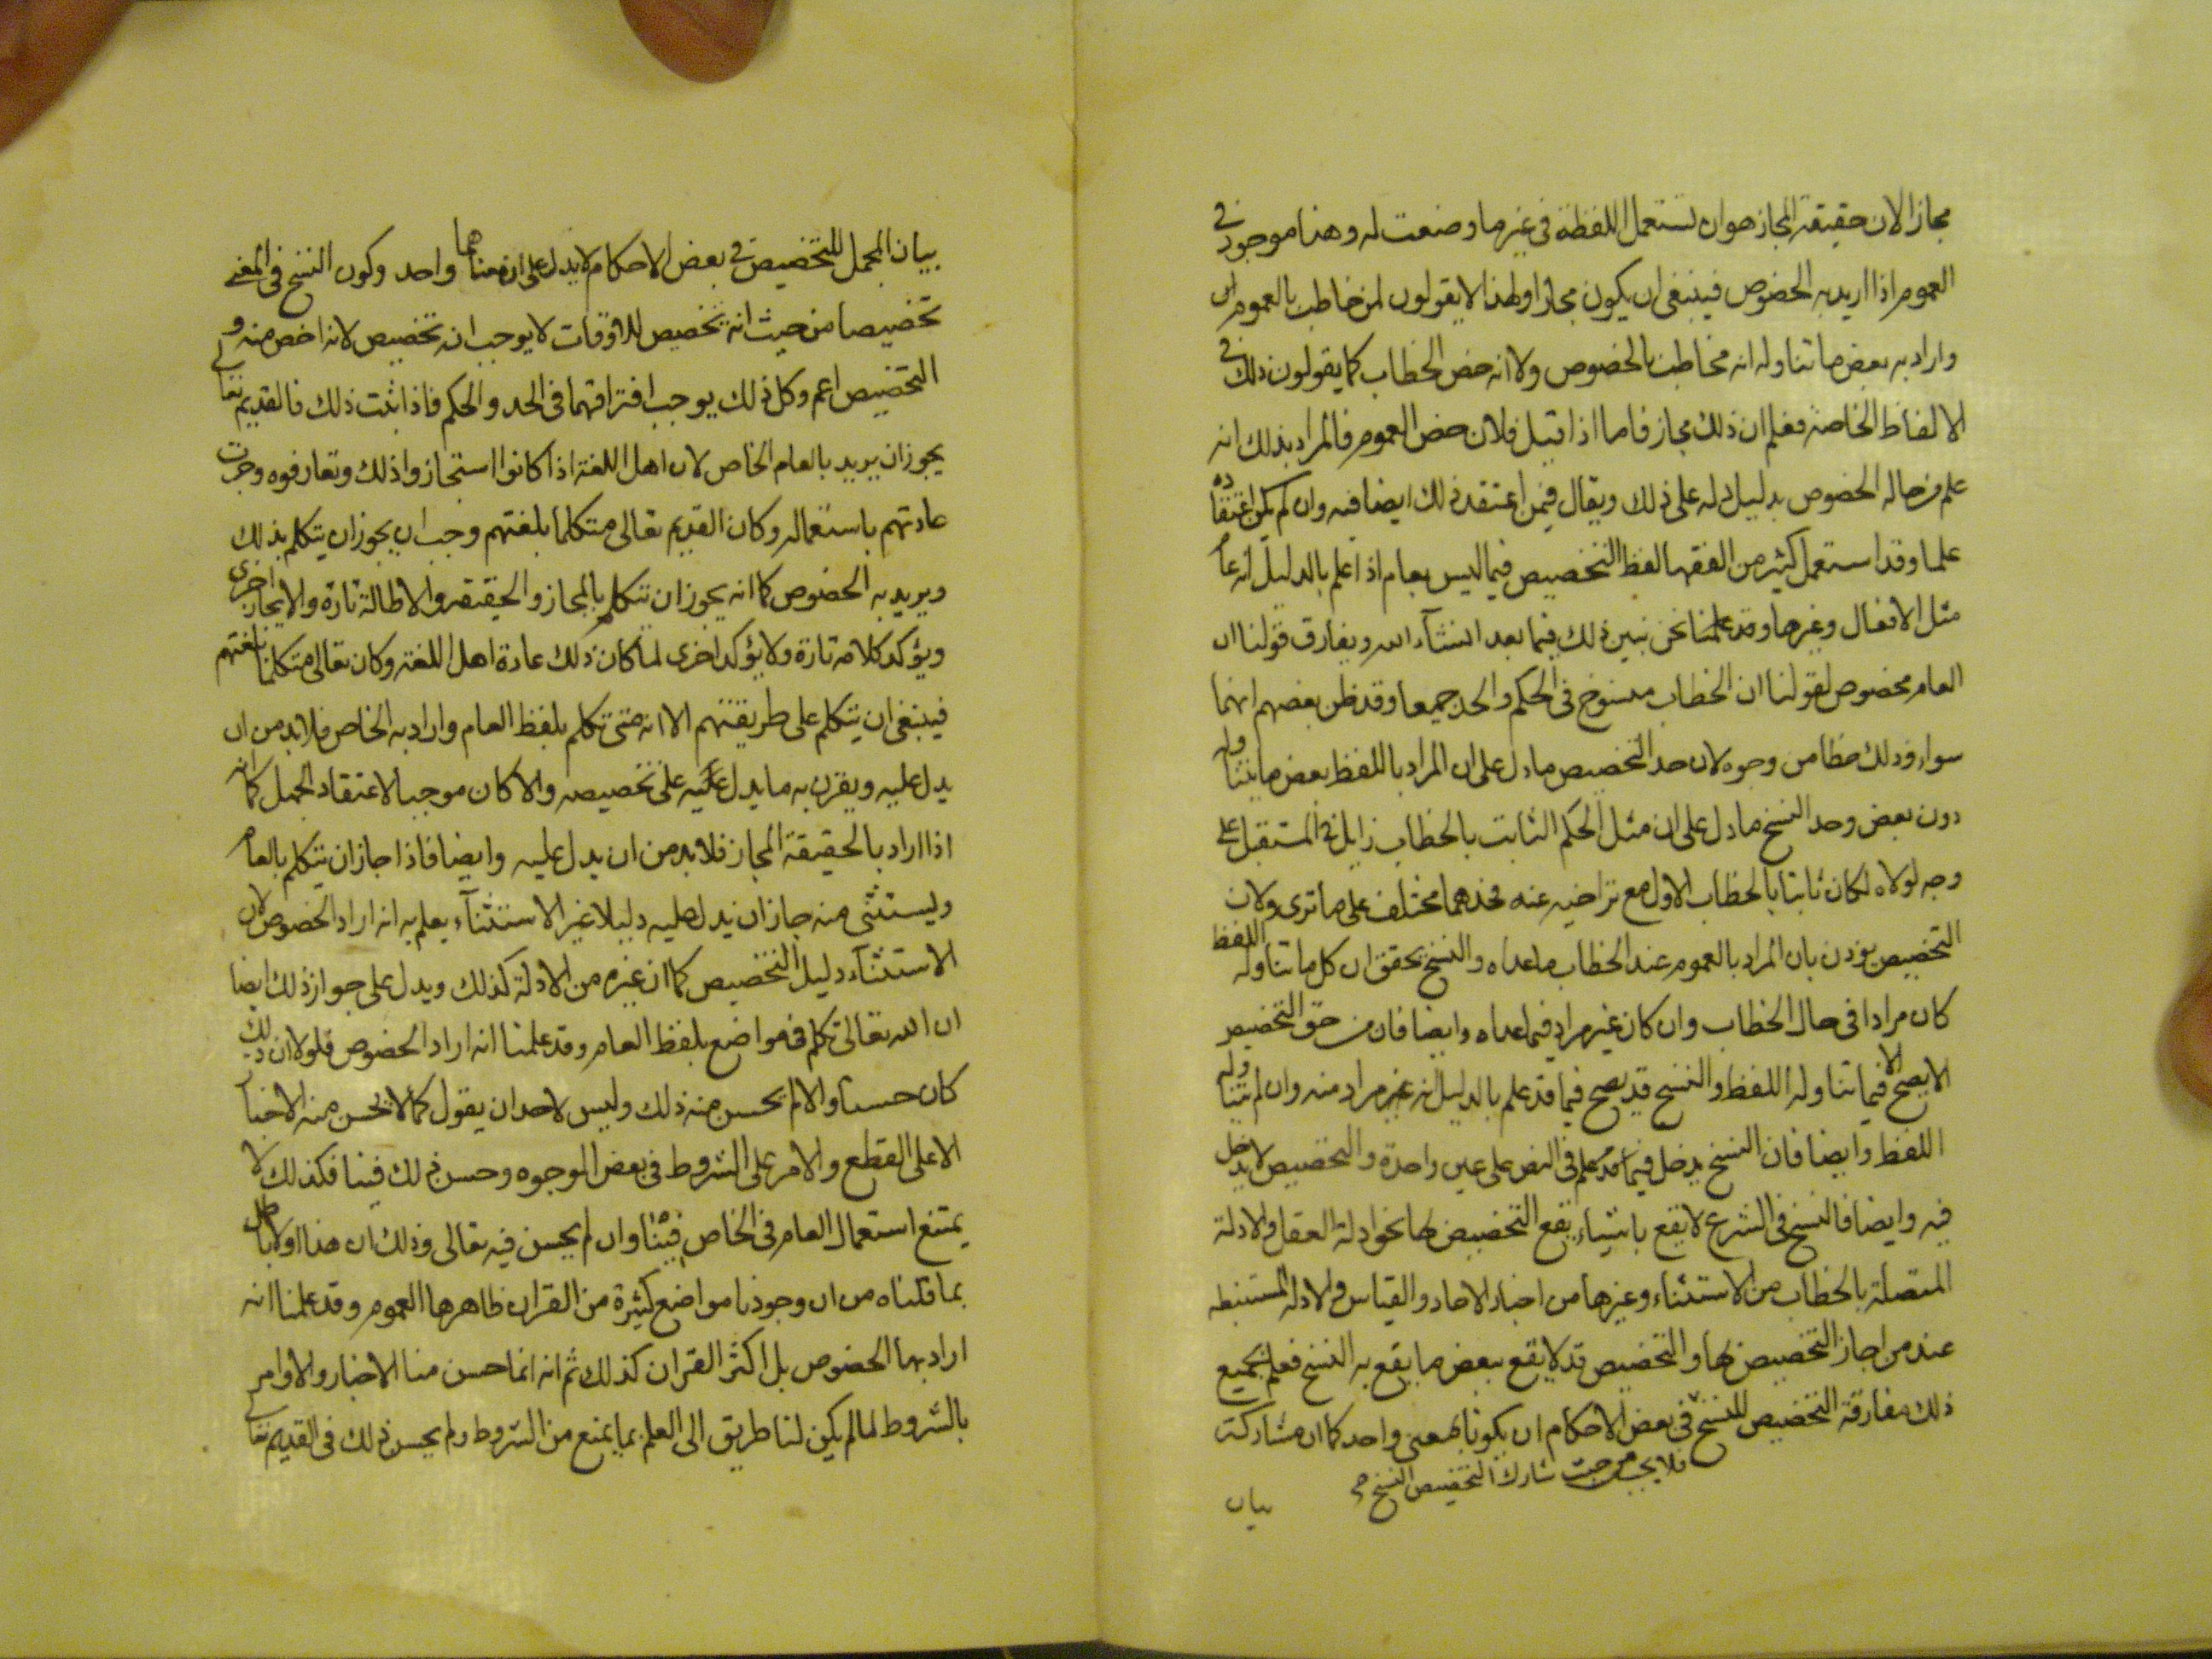 مجازا لان حقيقة المجاز هو ان تستعمل اللفظة فى غير ما وضعت له وهذا موجود فى
العموم اذا اريد به الخصوص فينبغى ان يكون مجازا ولهذا لا يقولون لمن خاطب بالعموم
واراد به بعض ما تناوله انه مخاطب بالخصوص ولا انه خص الخطاب كما يقولون ذلك فى
الالفاظ الخاصة فعلم ان ذلك مجاز فاما اذا قيل فلان خص العموم فالمراد بذلك انه
علم من حاله الخصوص بدليل دله على ذلك ويقال فيمن اعتقد ذلك ايضا فيه وان لم يكن اعتقاده
علما وقد استعمل كثير من الفقها لفظ التخصيص فيما ليس بعام اذا علم بالدليل انه عام
مثل الافعال وغيرها ونحن نبين ذلك فيما بعد انشآء الله ويفارق قولنا ان
العام مخصوص لقولنا ان الخطاب منسوخ فى الحكم والحد جميعا وقد ظن بعضهم انهما
سواء وذلك خطا من وجوه لان حد التخصيص ما دل على ان المراد باللفظ بعض ما يتناوله
دون بعض وحد النسخ ما دل على ان مثل الحكم الثابت بالخطاب زايل فى المستقبل على
وجه لولاه لكان ثابتا بالخطاب الاول مع تراخيه عنه فحدهما مختلف على ما ترى ولان
التخصيص يوذن بان المراد بالعموم عند الخطاب ما عداه والنسخ يحقق ان كل ما تناوله اللفظ
كان مرادا فى حال الخطاب وان كان غير مراد فيما عداه وايضا فان من حق التخصيص
الا يصح الا فيما تناوله اللفظ والنسخ قد يصح فيما قد علم بالدليل انه غير مراد منه وان لم يتناوله
اللفظ وايضا فان النسخ يدخل فيما قد علم فى النص على عين واحدة والتخصيص لا يدخل
فيه وايضا فالنسخ فى الشرع لا يقع باشياء يقع التخصيص بها نحو ادلة العقل والادلة
المتصلة بالخطاب من الاستثناء وغيرها من اخبار الاحاد والقياس والادلة المستنبطه
عند من اجاز التخصيص بها والتخصيص قد لا يقع ببعض ما يقع به النسخ فعلم بجميع
ذلك مفارقة التخصيص للنسخ فى بعض الاحكام ان يكونا بمعنى واحد كما ان مشاركة
فلا يجب من حيث شارك التخصيص النسخ صح
بيان
بيان المجمل للتخصيص فى بعض الاحكام لا يدل على ان معناهما واحد وكون النسخ فى المعنى
تخصيصا من حيث انه تخصيص للاوقات لا يوجب انه تخصيص لانه اخص منه و
التخصيص اعم وكل ذلك يوجب افتراقهما فى الحد والحكم فاذا ثبت ذلك فالقديم تعالى
يجوز ان يريد بالعام الخاص لان اهل اللغة اذا كانوا استجازوا ذلك وتعارفوه وجرت
عادتهم باستعماله وكان القديم تعالى متكلما بلغتهم وجب ان يجوز ان يتكلم بذلك
ويريد به الخصوص كما انه يجوز ان يتكلم بالمجاز والحقيقة والاطالة تارة والايجاز اخرى
ويؤكد كلامه تارة ولا يؤكد اخرى لما كان ذلك عادة اهل اللغة وكان تعالى متكلما بلغتهم
فينبغى ان يتكلم على طريقتهم الا انه متى تكلم بلفظ العام واراد به الخاص فلا بد من ان
يدل عليه ويقرن به ما يدل عليه على تخصيصه والا كان موجبا لاعتقاد الجهل كما انه
اذا اراد بالحقيقة المجاز فلا بد من ان يدل عليه وايضا فاذا جاز ان يتكلم بالعام
ويستثنى منه جاز ان يدل عليه دليلا غير الاستثنآء يعلم به انه اراد الخصوص لان
الاستثنآء دليل التخصيص كما ان غيره من الادلة كذلك ويدل على جواز ذلك ايضا
ان الله تعالى تكلم فى مواضع بلفظ العام وقد علمنا انه اراد الخصوص فلولا ان ذلك
كان حسنا والا لم يحسن منه ذلك وليس لاحد ان يقول كما لا يحسن منه الاخبار
الا على القطع والامر على الشروط فى بعض الوجوه وحسن ذلك فينا فكذلك لا
يمتنع استعمال العام فى الخاص فينا وان لم يحسن فيه تعالى وذلك ان هذا اولا باطل
بما قلناه من ان وجودنا مواضع كثيرة من القران ظاهرها العموم وقد علمنا انه
اراد بها الخصوص بل اكثر القران كذلك ثم انه انما حسن منا الاخبار والاوامر
بالشروط لما لم يكن لنا طريق الى العلم بما يمنع من الشروط ولم يحسن ذلك فى القديم تعالى